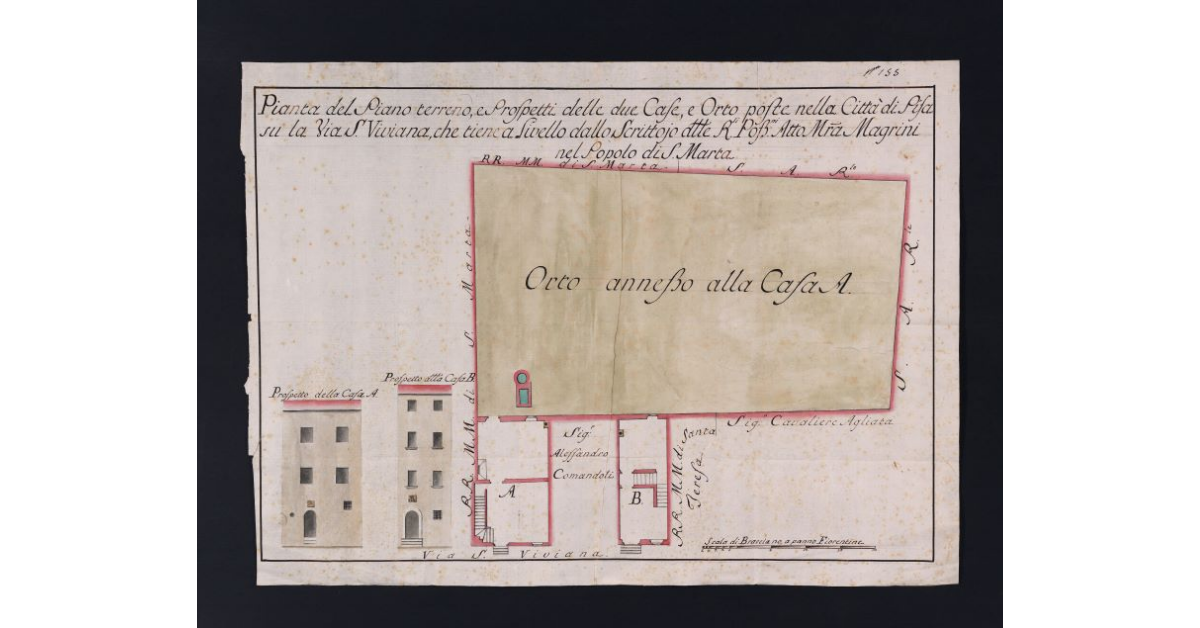 N° 155
Pianta del Piano terreno, e Prospetti delle due Case, e Orto poste nella Città di Pisa
su la Via S. Viviana, che tiene a Livello dallo Scrittojo delle R. Poss.ni Atto M.ra Magrini
nel Popolo di S. Marta
RR. MM. di S. Marta
S. A. R.le
S. A. R.le
RR. MM. di S. Marta
Orto annesso alla Casa A.
Prospetto della Casa A
Prospetto della Casa B.
Sig.r
Alessandro
Comandoli
A
B.
Sig.r Cavaliere Agliata
RR. MM. di Santa
Teresa.
Via S. Viviana.
Scala di Braccia a panno Fiorentine